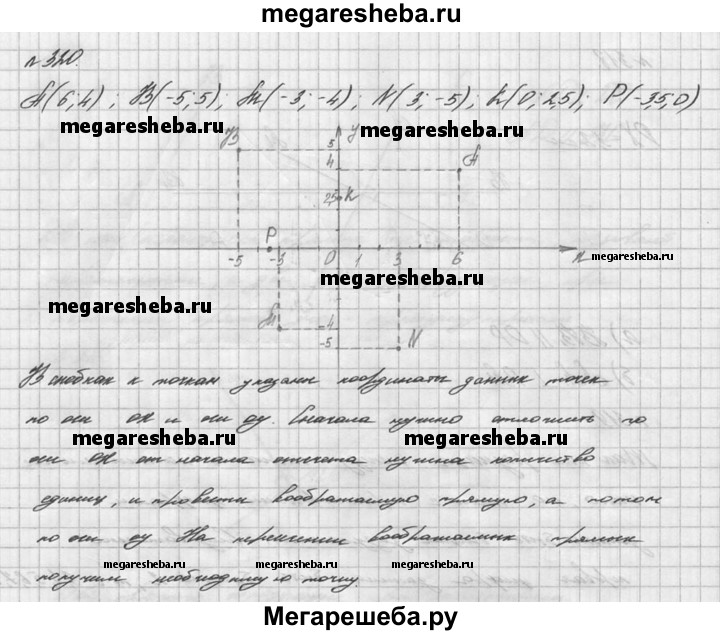 megaresheba.ru
№ 320.
A(6; 4); B(-5; 5); M(-3; -4); N(3; -5); K(0; 2,5); P(-3,5; 0)
megaresheba.ru megaresheba.ru
B 5 y
4 A
2,5 K
P
-5 -3 0 1 3 6 x megaresheba.ru
megaresheba.ru
megaresheba.ru
M -4
-5 N
В скобках к точкам указаны координаты данных точек
по оси ОХ и оси ОУ. Сначала нужно отложить по
megaresheba.ru megaresheba.ru
оси ОХ от начала отсчета нужное количество
единиц, и провести воображаемую прямую, а потом
по оси ОУ На пересечении воображаемых прямых
megaresheba.ru megaresheba.ru
получим необходимую точку.
megaresheba.ru megaresheba.ru
Мегарешеба.ру